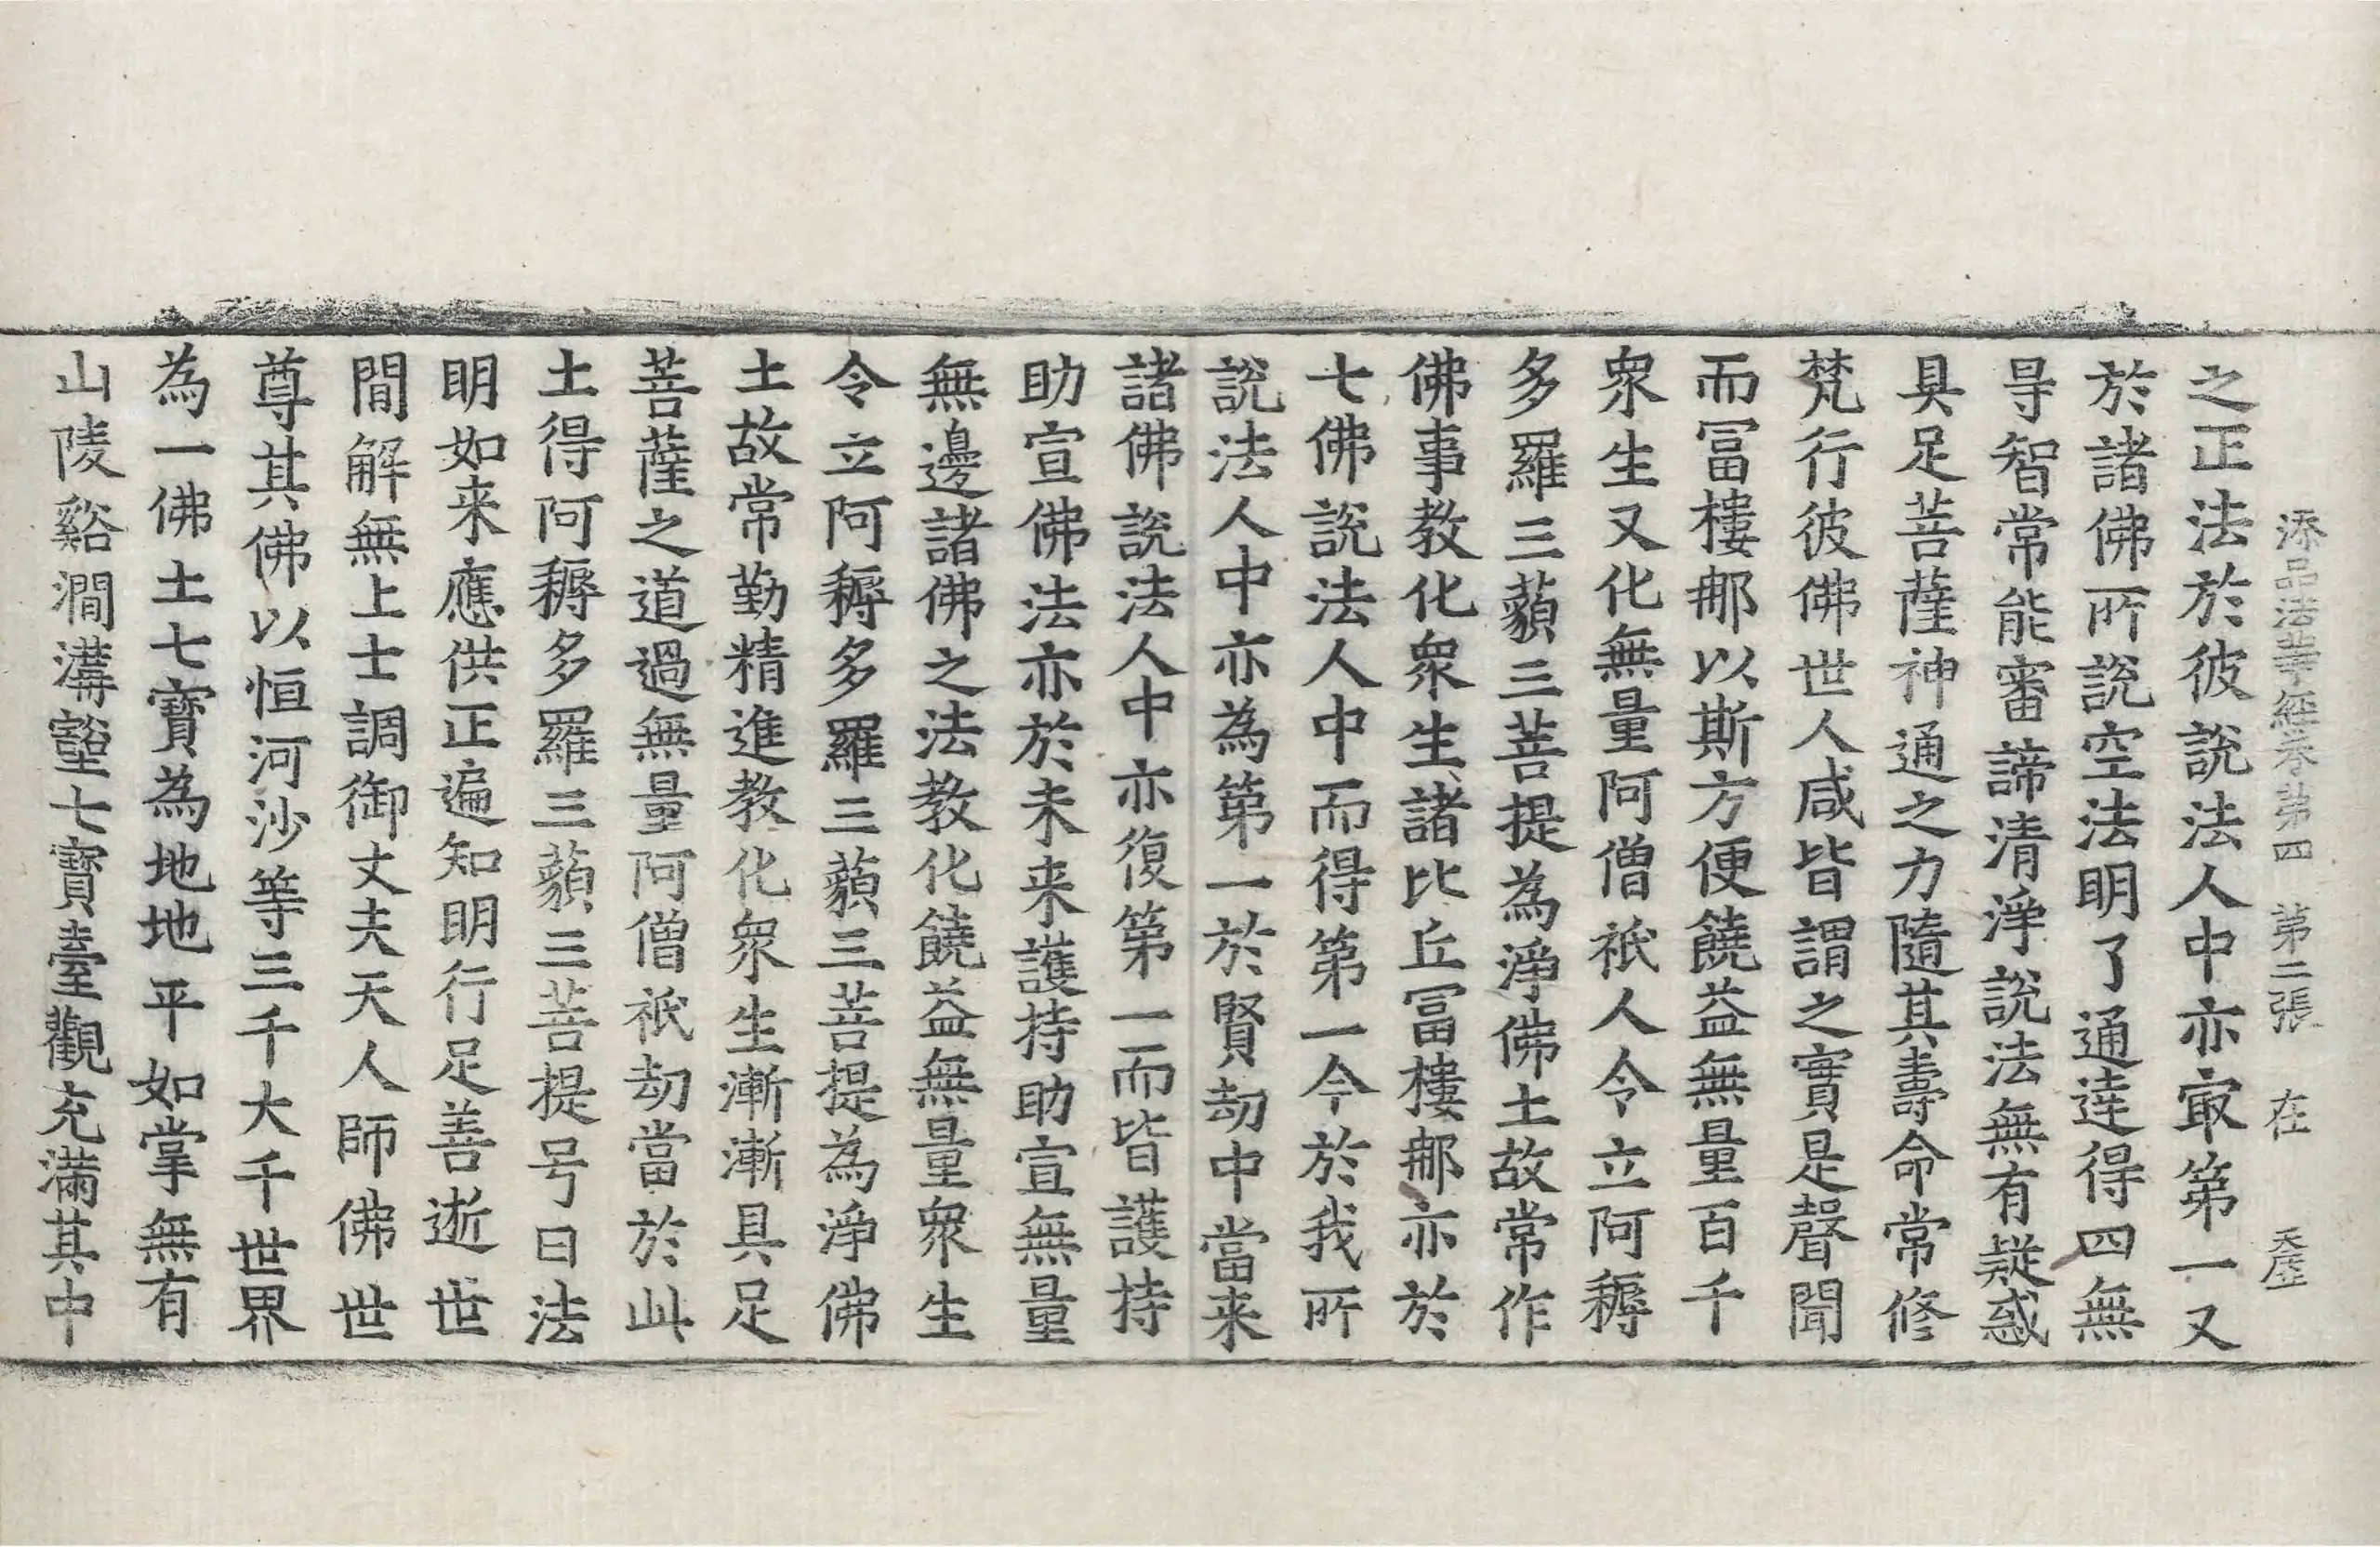 添品法華經卷第四 第二張 在 天壁
之正法於彼說法人中亦㝡第一又
於諸佛所說空法明了通達得四無
㝵智常能審諦清淨說法無有疑惑
具足菩薩神通之力隨其壽命常修
梵行彼佛世人咸皆謂之實是聲聞
而冨樓那以斯方便饒益無量百千
衆生又化無量阿僧祇人令立阿耨
多羅三藐三菩提為淨佛土故常作
佛事教化衆生諸比丘冨樓那亦於
七佛說法人中而得第一今於我所
說法人中亦為第一於賢劫中當来
諸佛說法人中亦復第一而皆護持
助宣佛法亦於未来護持助宣無量
無邊諸佛之法教化饒益無量衆生
令立阿耨多羅三藐三菩提為淨佛
土故常勤精進教化衆生漸漸具足
菩薩之道過無量阿僧祇劫當於此
土得阿耨多羅三藐三菩提号曰法
明如来應供正遍知明行足善逝世
間解無上士調御丈夫天人師佛世
尊其佛以恒河沙等三千大千世界
為一佛土七寶為地地平如掌無有
山陵谿澗溝壑七寶臺觀充滿其中